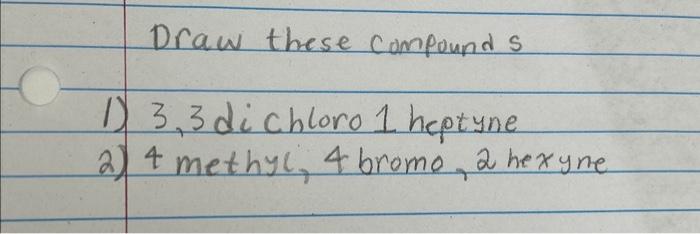 Draw these compounds
1) 3,3 dichloro 1 heptyne
2) 4 methyl, 4 bromo, 2 hexyne